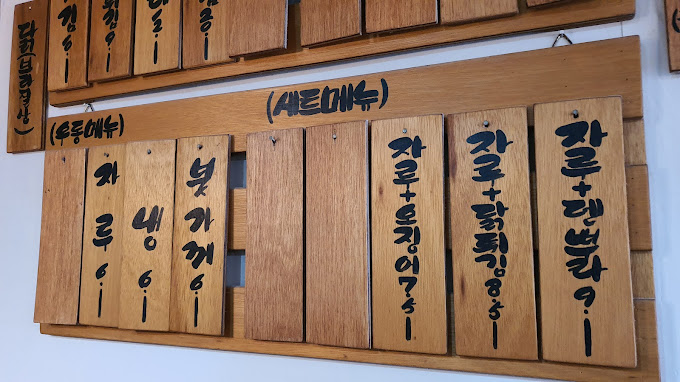 (우동메뉴)
(세트메뉴)
자루 6.-
냉 6.-
붓가께 6.-
자루+오징어 7.5-
자루+닭튀김 8.5-
자루+덴뿌라 9.-